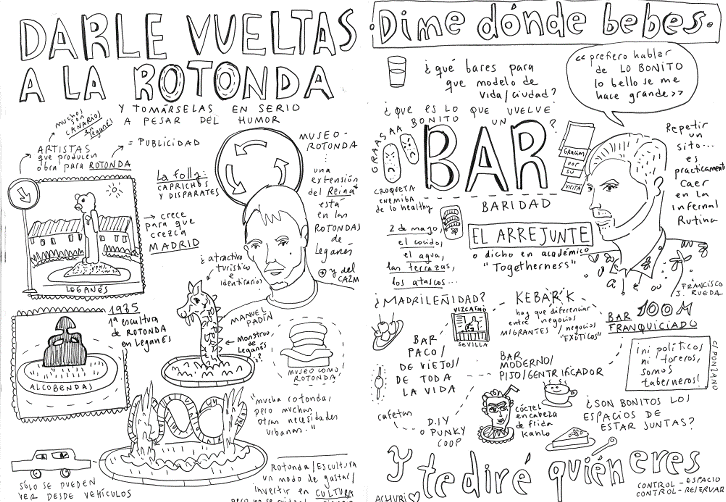 DARLE VUELTAS
A LA ROTONDA
Y TOMÁRSELAS EN SERIO
A PESAR DEL HUMOR
MUCHOS
CANARIOS
LEGANÉS
ARTISTAS
que producen
obra para ROTONDA
= PUBLICIDAD
La folla:
CAPRICHOS
Y DISPARATES
→ crece
para que
crezca
MADRID
LEGANÉS
MUSEO-
ROTONDA
una
extensión
del Reina
está
en las
ROTONDAS
de
Leganés
y del
CA2M
¿atractivo
turístico
e
identitario?
MANUEL
PADÍN
← Monstruo
de
Leganés
??
MUSEO COMO
ROTONDA
1935
1ª escultura
de ROTONDA
en Leganés
ALCOBENDAS
"mucha rotonda
pero muchas
otras necesidades
urbanas."
SÓLO SE PUEDEN
VER DESDE VEHÍCULOS
Rotonda/Escultura
un modo de gastar/
invertir en CULTURA
·Dime dónde bebes·
¿qué bares para
que modelo de
vida/ciudad?
<<prefiero hablar
de LO BONITO
lo bello se me
hace grande>>
¿QUE ES LO QUE VUELVE
BONITO UN
BAR
?
GRAASAA
CROQUETA
ENEMIGA
de lo healthy
GRACIAS
POR
SU
VISITA
Repetir
un
sitio...
es
prácticamente
Caer
en la
Infernal
Rutina
BARIDAD
2 de mayo
el cocido,
el agua,
las terrazas,
los atascos...
EL ARREJUNTE
o dicho en académico
"Togetherness"
FRANCISCO
J. RUEDA
¿MADRILEÑIDAD?
VIZCAÍNO
SEVILLA
KEBARK
hay que diferenciar
entre negocios
MIGRANTES / negocios
"EXÓTICOS"
BAR 100M
FRANQUICIADO
BAR
PACO/
DE VIEJOS/
DE TODA
LA VIDA
BAR
MODERNO/
PIJO/GENTRIFICADOR
¡ni políticos
ni toreros,
somos
taberneros!
cafetín
D.I.Y
o PUNKY
COOP
cóctel
en cabeza
de frida
Kahlo
¿SON BONITOS LOS
ESPACIOS DE
ESTAR JUNTAS?
Y te diré quién eres
ACHURI
CONTROL - ESPACIO
CONTROL - RESERVAR